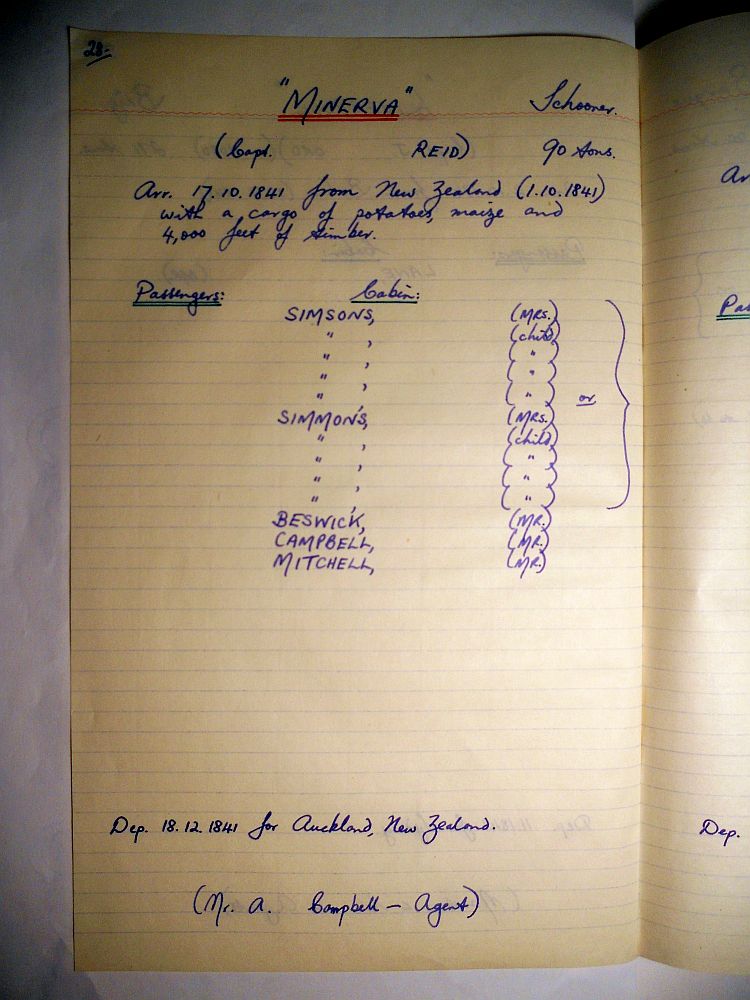 28.
"MINERVA" Schooner.
(Capt. REID) 90 tons.
Arr. 17.10.1841 from New Zealand (1.10.1841)
with a cargo of potatoes, maize and
4,000 feet of timber.
Passengers: Cabin:
SIMSONS, (MRS.)
" , (child)
" , ( " )
" , ( " )
" , ( " ) or
SIMMONS, (MRS.)
" , (child)
" , ( " )
" , ( " )
" , ( " )
BESWICK, (MR.)
CAMPBELL, (MR.)
MITCHELL, (MR.)
Dep. 18.12.1841 for Auckland, New Zealand.
(Mr. A. Campbell – Agent)
Ar
Pas
Dep.